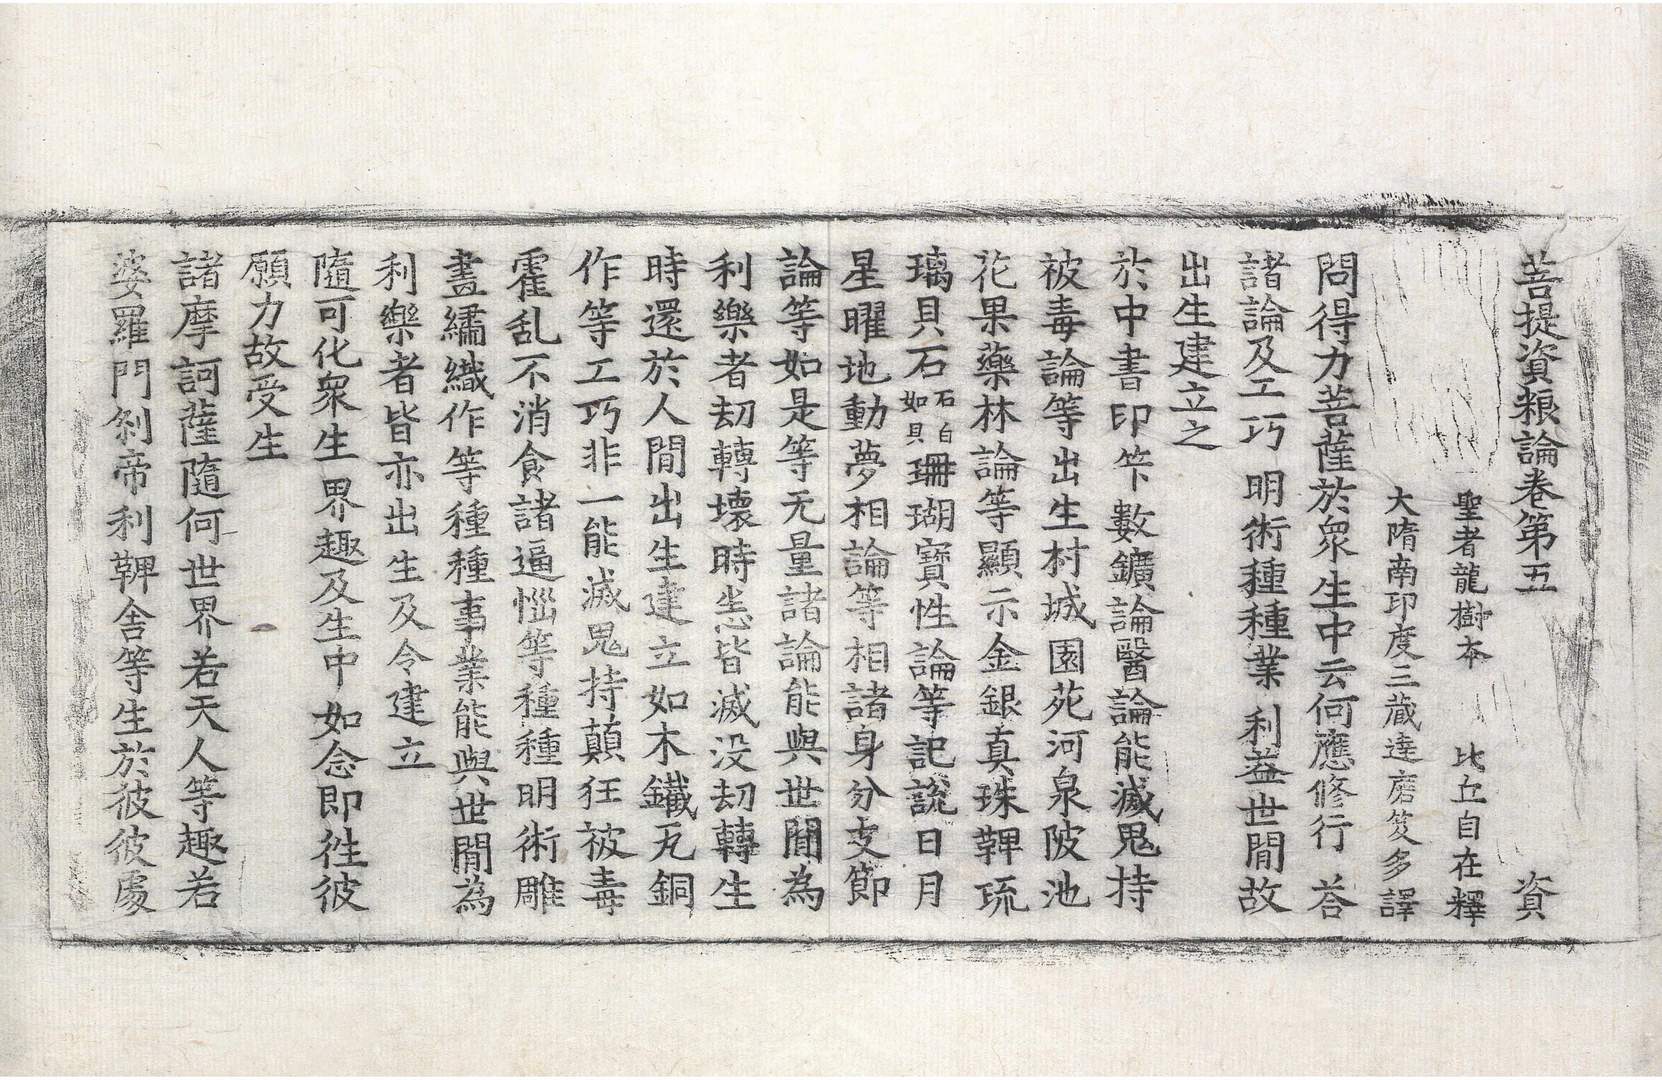 菩提資粮論卷第五　資
聖者龍樹本　比丘自在釋
大隋南印度三藏達磨笈多譯
問得力菩薩於眾生中云何應修行　荅
諸論及工巧　明術種種業　利益世間故
出生建立之
於中書印竿數鑛論醫論能滅鬼持
被毒論等出生村城園苑河泉陂池
花果藥林論等顯示金銀真珠鞞琉
璃貝石石白如貝珊瑚寶性論等記說日月
星曜地動夢相論等相諸身分支節
論等如是等无量諸論能與世間為
利樂者劫轉壞時悉皆滅没劫轉生
時還於人間出生建立如木鐵瓦銅
作等工巧非一能滅鬼持顛狂被毒
霍乱不消食諸逼惱等種種明術雕
畫繡織作等種種事業能與世間為
利樂者皆亦出生及令建立
隨可化眾生　界趣及生中　如念即徃彼
願力故受生
諸摩訶薩隨何世界若天人等趣若
婆羅門剎帝利鞞舍等生於彼彼處